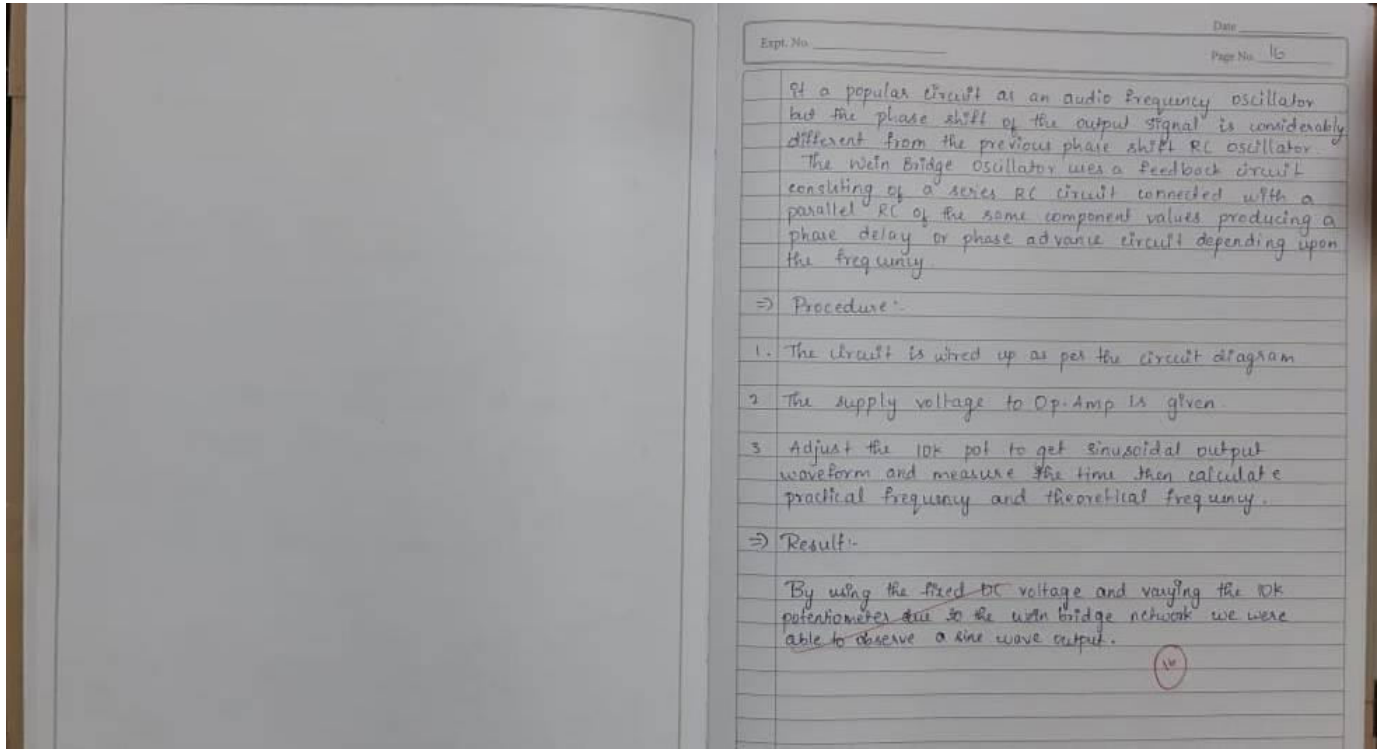 Date
Expt. No.
Page No. 16
It a popular circuit as an audio frequency oscillator
but the phase shift of the output signal is considerably
different from the previous phase shift RC oscillator.
The Wein Bridge Oscillator uses a feedback circuit
consisting of a series RC circuit connected with a
parallel RC of the same component values producing a
phase delay or phase advance circuit depending upon
the frequency.
=> Procedure:-
1. The circuit is wired up as per the circuit diagram
2 The supply voltage to Op-Amp is given.
3 Adjust the 10k pot to get sinusoidal output
waveform and measure the time then calculate
practical frequency and theoretical frequency.
=> Result:-
By using the fixed DC voltage and varying the 10k
potentiometer due to the wein bridge network we were
able to observe a sine wave output.